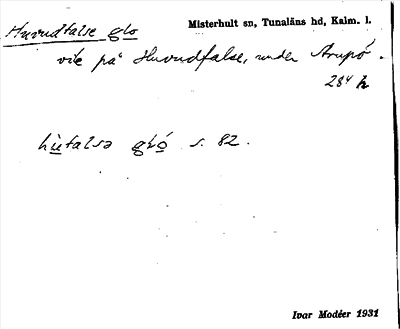 Huvudfalse glo
Misterhult sn, Tunaläns hd, Kalm. l.
vik på Huvudfalse, under Arupö.
284 h
hùtalsə gló s. 82.
Ivar Modéer 1931